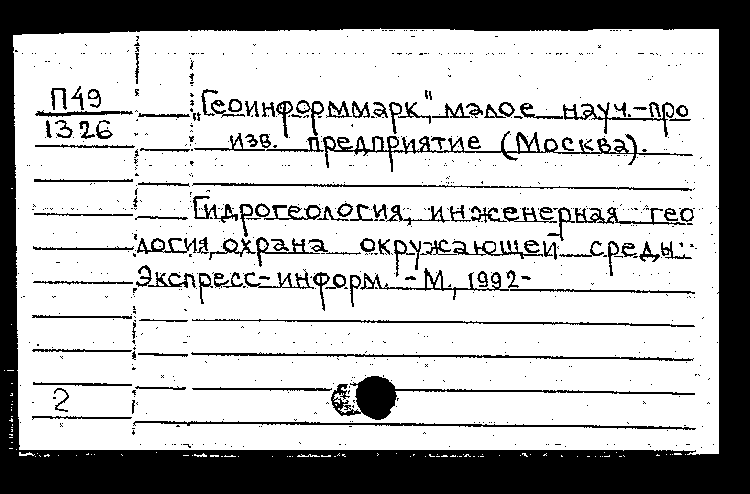 П49
1326
"Геоинформмарк", малое науч.-про
изв. предприятие (Москва).
Гидрогеология, инженерная гео
логия, охрана окружающей среды:
Экспресс-информ. - М., 1992-
2